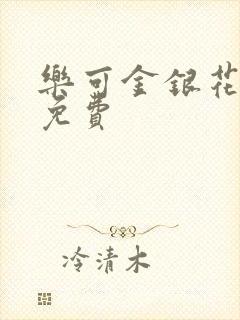 樂可金銀花
免費
冷清木